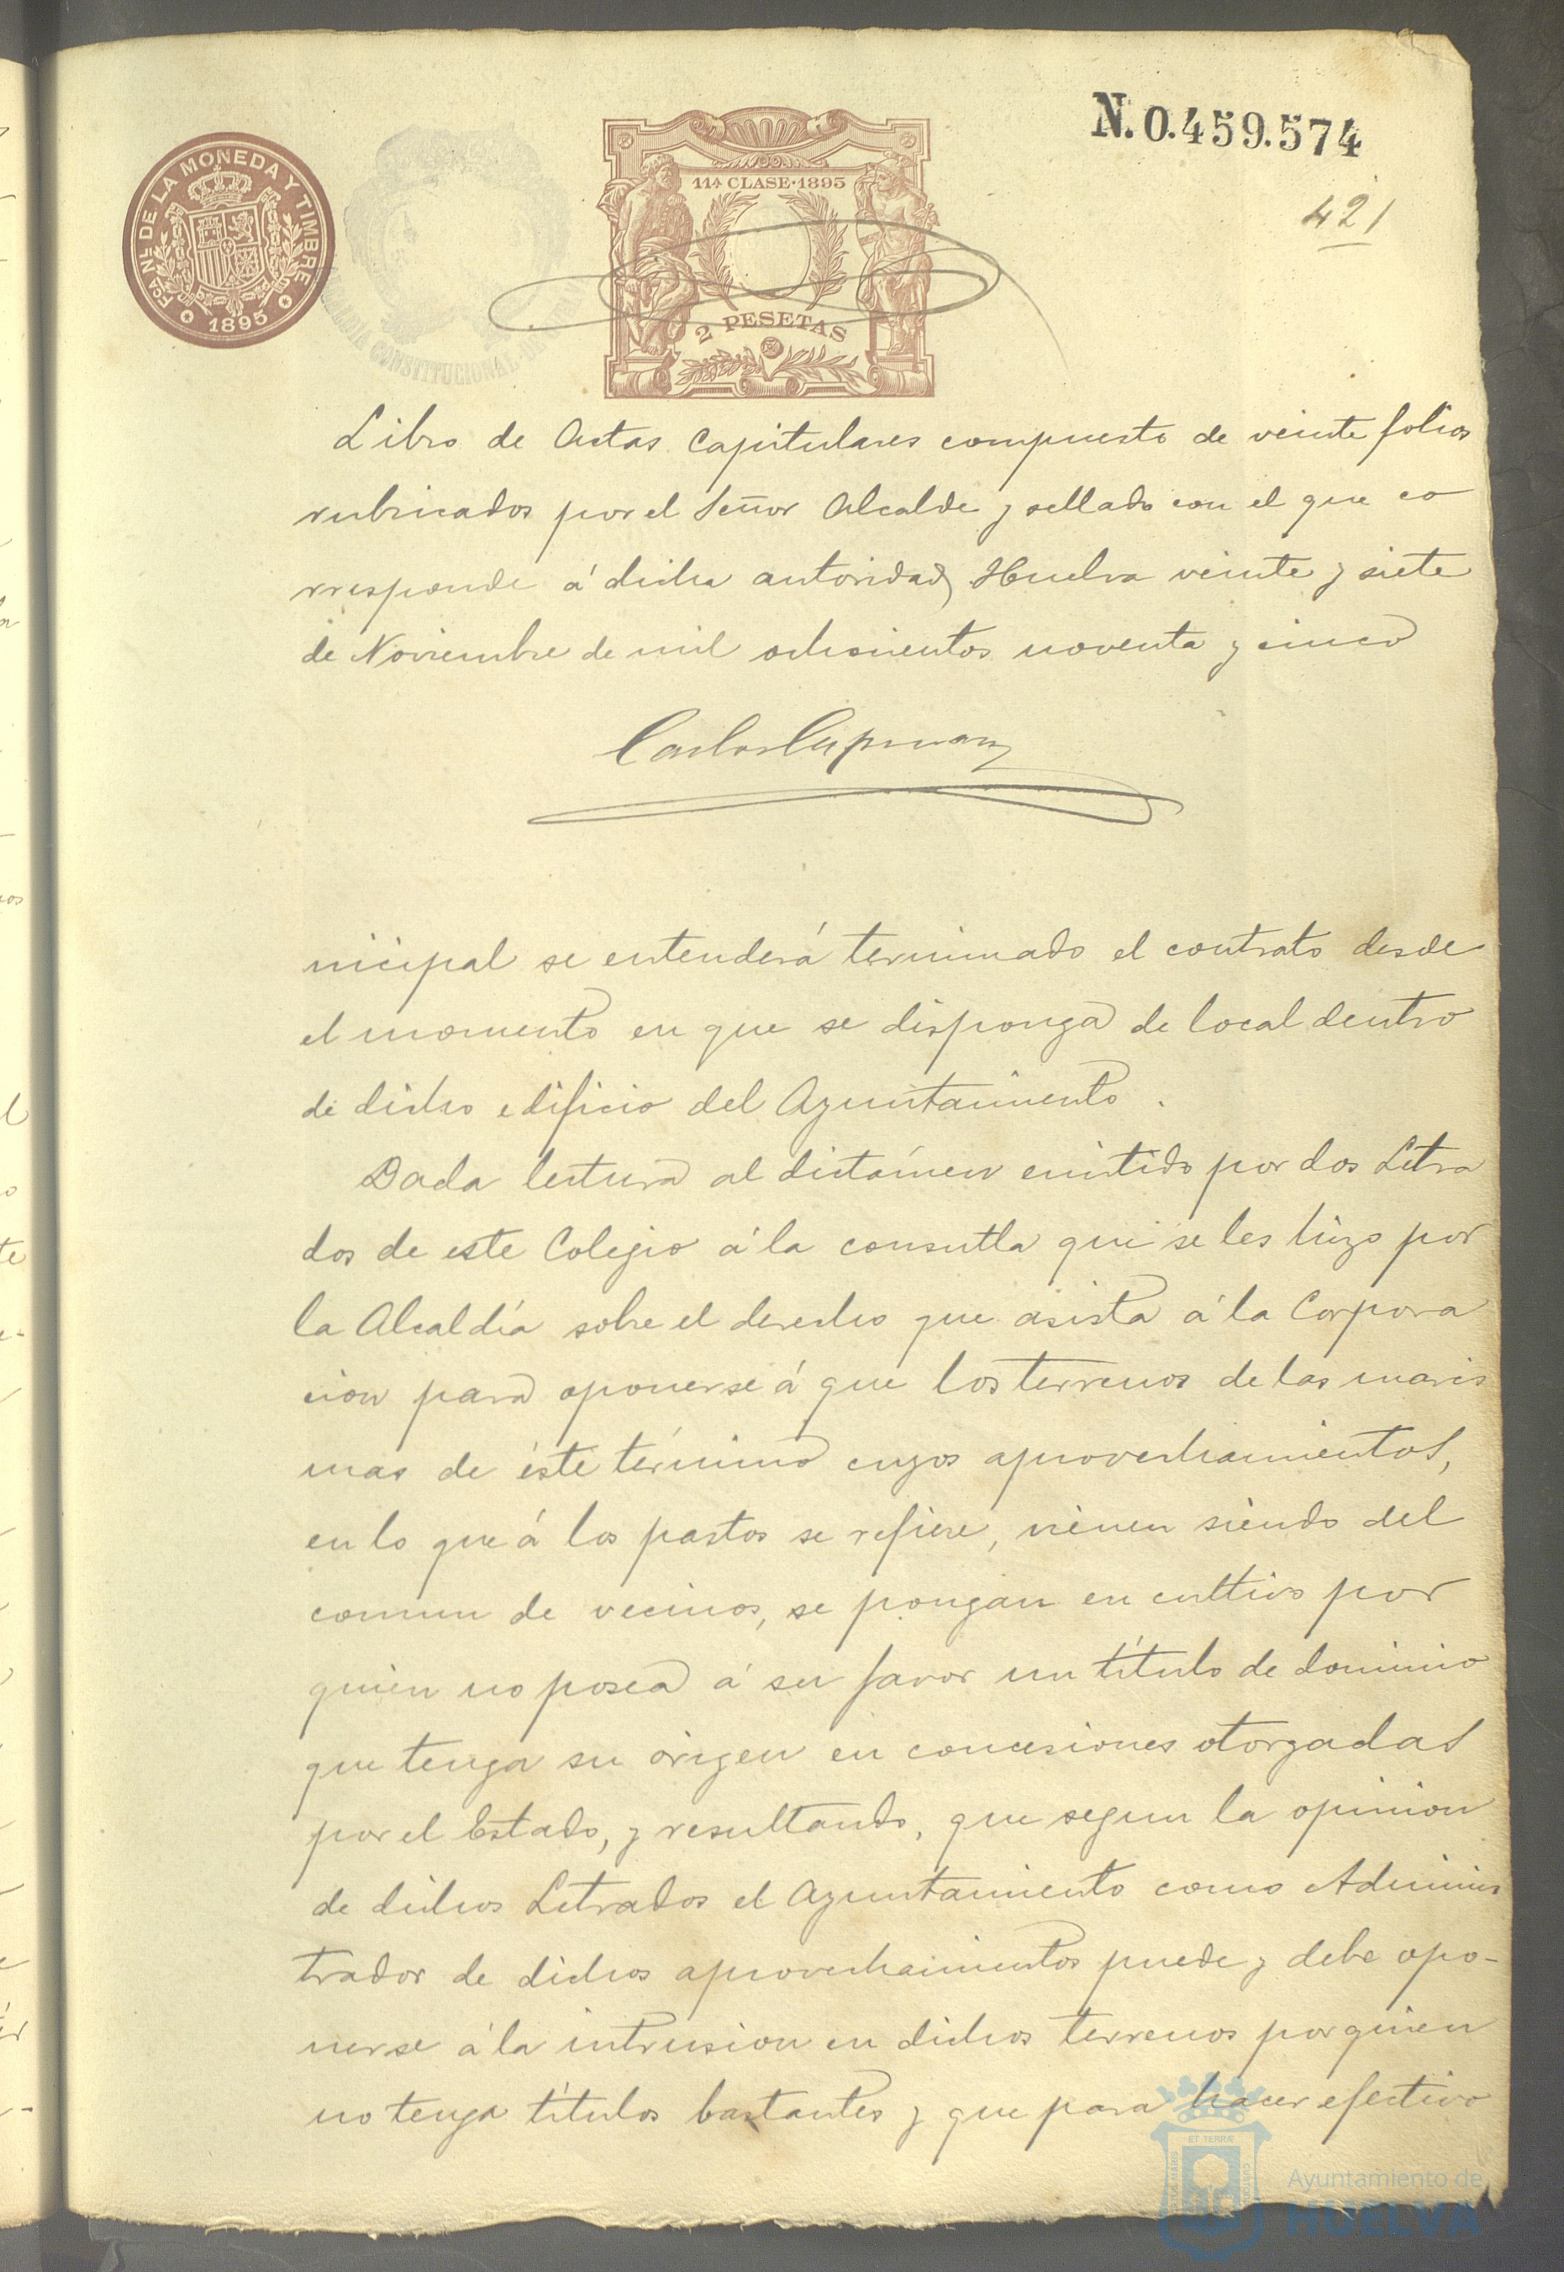 N. 0.459.574
FCA NL DE LA MONEDA Y TIMBRE
1895
11ª CLASE·1895
2 PESETAS
CONSTITUCIONAL
421
Libro de Actas Capitulares compuesto de veinte folios
rubricados por el Señor Alcalde y sellado con el que co
rresponde á dicha autoridad, Huelva veinte y siete
de Noviembre de mil ochocientos noventa y cinco
Carlos
nicipal se entenderá terminado el contrato desde
el momento en que se disponga de local dentro
de dicho edificio del Ayuntamiento.
Dada lectura al dictámen emitido por dos Letra
dos de este Colegio á la consulta que se les hizo por
la Alcaldía sobre el derecho que asista á la Corpora
cion para oponerse á que los terrenos de las maris
mas de éste término cuyos aprovechamientos,
en lo que á los pastos se refiere, vienen siendo del
comun de vecinos, se pongan en cultivo por
quien no posea á su favor un título de dominio
que tenga su origen en concesiones otorgadas
por el Estado, y resultando, que segun la opinion
de dichos Letrados el Ayuntamiento como Adminis
trador de dichos aprovechamientos puede y debe opo-
nerse á la intrusion en dichos terrenos por quien
no tenga títulos bastantes y que para hacer efectivo
ET TERRÆ
Ayuntamiento de
HUELVA